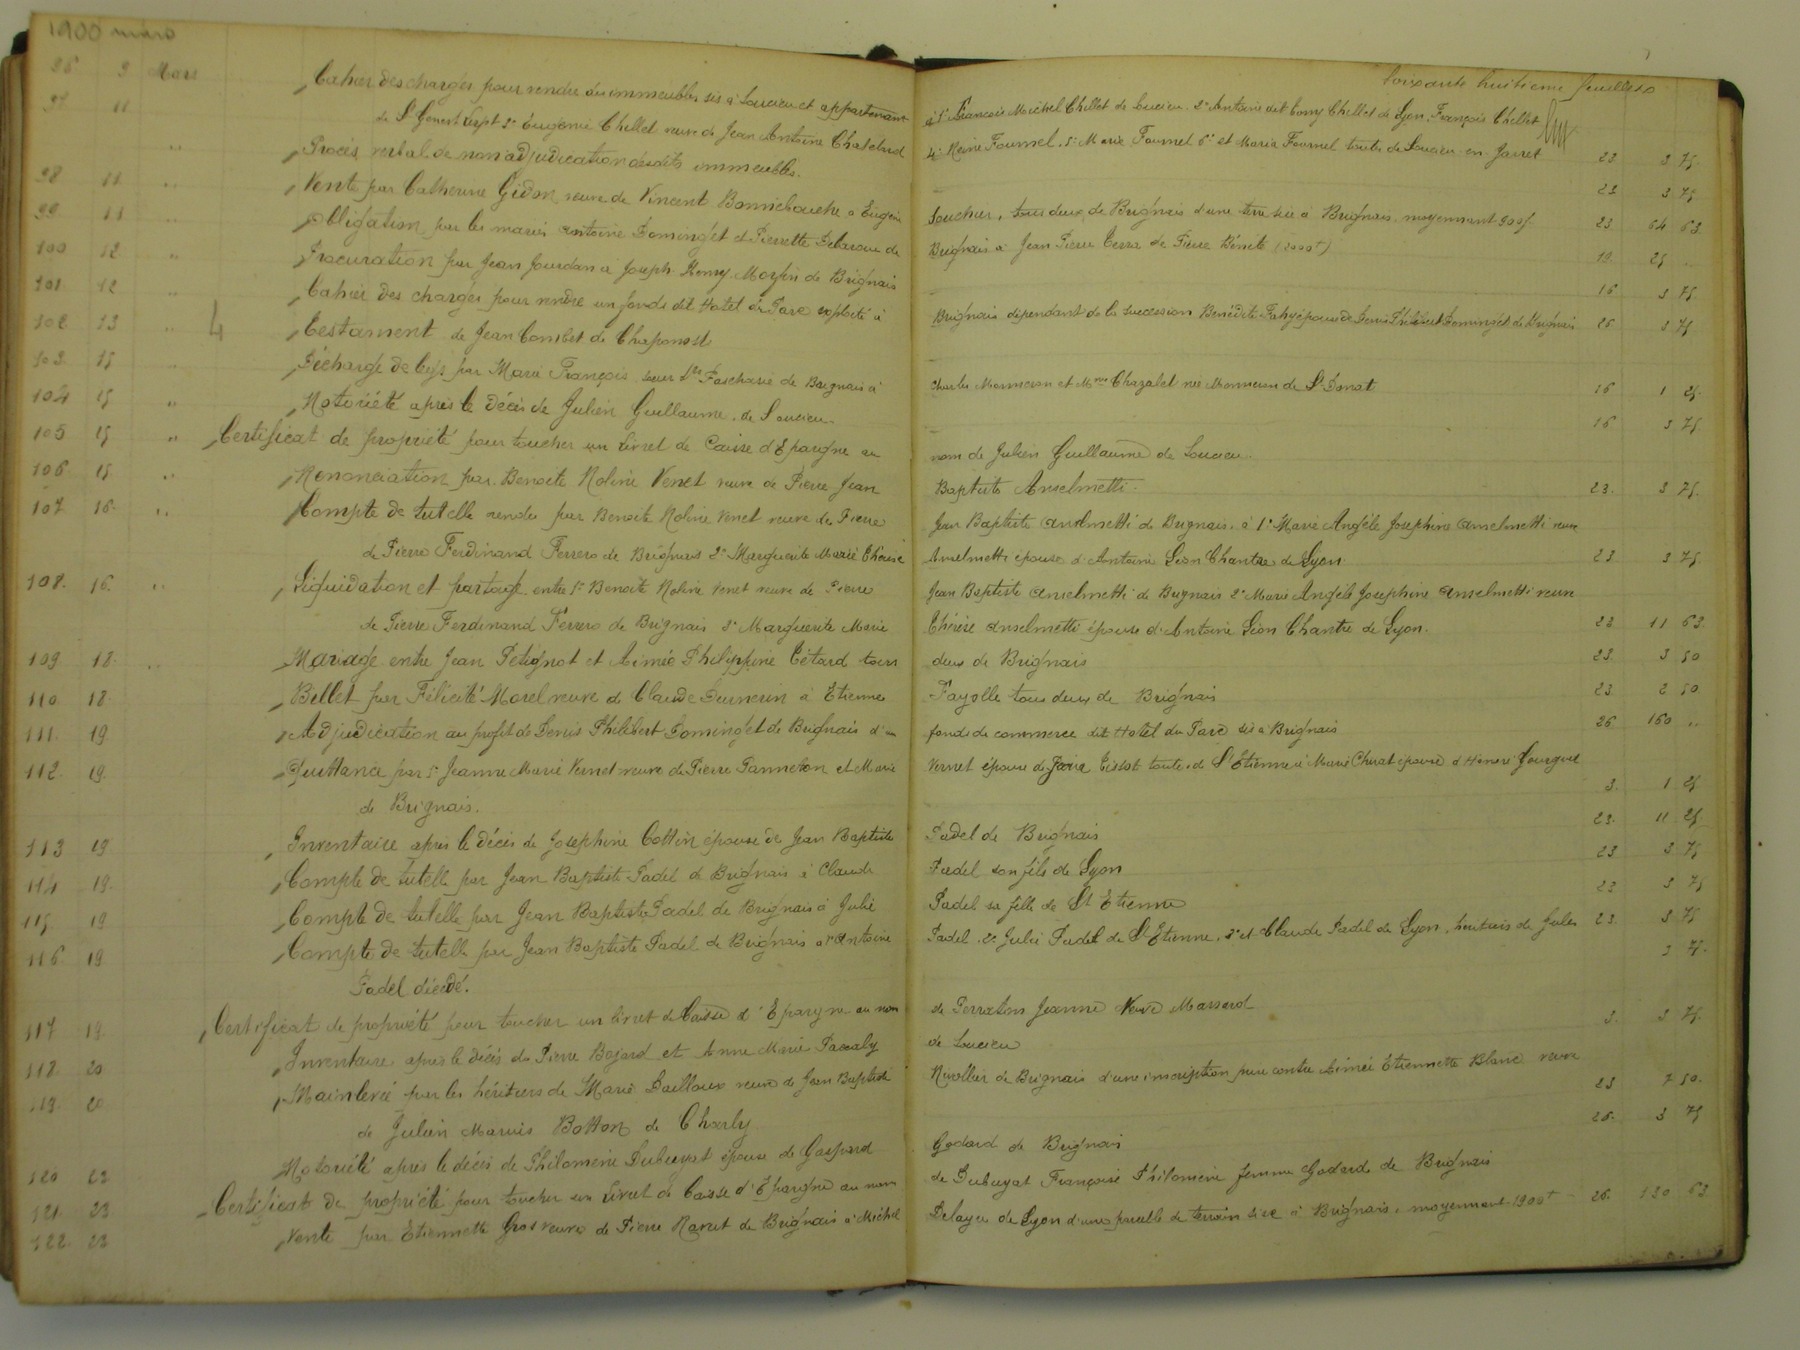 1900 mars
Soixante huitième feuillet
96 9 Mars Cahier des charges pour vendre des immeubles sis à Soucieu et appartenant à 1° François Michel Chillet de Soucieu 2° Antoine dit Tony Chillet de Lyon, François Chillet
de St Genest Lerpt 3° Eugénie Chillet veuve de Jean Antoine Chatelard 4° Reine Fournel, 5° Marie Fournel 6° et Maria Fournel toutes de Soucieu en Jarret 23 3 75
97 11 " Procès verbal de non adjudication desdits immeubles. 23 3 75
98 11 " Vente par Catherine Gidon veuve de Vincent Bonnebouche à Eugène Souchier, tous deux de Brignais d'une terre sise à Brignais, moyennant 900f 23 64 63
99 11 " Obligation par les mariés Antoine Dominget et Pierrette Delaroue de Brignais à Jean Pierre Terra de Pierre Bénite (2000f) 19 25 "
100 12 " Procuration par Jean Jourdan à Joseph Remy Morfin de Brignais 16 3 75
101 12 " Cahier des charges pour vendre un fonds dit Hotel du Parc exploité à Brignais dépendant de la succession Bénédite Fahy épouse de Denis Philibert Dominget de Brignais 26 3 75
102 13 " 4 Testament de Jean Combet de Chaponost
103 15 " Décharge de legs par Marie François sœur de Paschasie de Brignais à Charles Monneron et Mme Chazalet née Monneron de St Donat 16 1 25
104 15 " Notoriété après le décès de Julien Guillaume de Soucieu 16 3 75
105 15 " Certificat de propriété pour toucher un livret de Caisse d'Epargne au nom de Julien Guillaume de Soucieu.
106 15 " Renonciation par Benoite Noline Venet veuve de Pierre Jean Baptiste Anselmetti. 23 3 75
107 16 " Compte de tutelle rendu par Benoite Noline Venet veuve de Pierre Jean Baptiste Anselmetti de Brignais à 1° Marie Angèle Joséphine Anselmetti veuve
de Pierre Ferdinand Ferrero de Brignais 2° Marguerite Marie Thérèse Anselmetti épouse d'Antoine Léon Chantre de Lyon 23 3 75
108 16 " Liquidation et partage entre 1° Benoite Noline Venet veuve de Pierre Jean Baptiste Anselmetti de Brignais 2° Marie Angèle Joséphine Anselmetti veuve
de Pierre Ferdinand Ferrero de Brignais 3° Marguerite Marie Thérèse Anselmetti épouse d'Antoine Léon Chantre de Lyon. 23 11 63
109 18 " Mariage entre Jean Petignot et Aimée Philippine Tétard tous deux de Brignais 23 3 50
110 18 Billet par Félicité Morel veuve de Claude à Etienne Fayolle tous deux de Brignais 23 2 50
111 19 Adjudication au profit de Denis Philibert Dominget de Brignais d'un fonds de commerce dit Hotel du Parc sis à Brignais 26 160 "
112 19 Quittance par 1° Jeanne Marie Vernet veuve de Pierre Panneton et Marie Vernet épouse de Tissot toutes de St Etienne à Marie Chirat épouse d'Honoré Jourgue
de Brignais. 3 1 25
113 19 Inventaire après le décès de Joséphine Cottin épouse de Jean Baptiste Padel de Brignais 23 11 25
114 19 Compte de tutelle par Jean Baptiste Padel de Brignais à Claude Padel son fils de Lyon 23 3 75
115 19 Compte de tutelle par Jean Baptiste Padel de Brignais à Julie Padel sa fille de St Etienne 23 3 75
116 19 Compte de tutelle par Jean Baptiste Padel de Brignais à 1° Antoine Padel, 2° Julie Padel de St Etienne, 3° et Claude Padel de Lyon, héritiers de Jules 23 3 75
Padel décédé. 3 75
117 19 Certificat de propriété pour toucher un livret de Caisse d'Epargne au nom de Jeanne Veuve Massard
118 20 Inventaire après le décès de Pierre Bojard et Anne Marie Pascaly de Soucieu 3 3 75
119 20 Mainlevée par les héritiers de Marie veuve de Jean Baptiste Nivollier de Brignais d'une inscription prise contre Aimée Etiennette Blanc veuve
de Julien Marius Botton de Charly 23 7 50
120 22 Notoriété après le décès de Philomène Dubuyat épouse de Gaspard Godard de Brignais 26 3 75
121 23 Certificat de propriété pour toucher un livret de Caisse d'Epargne au nom de Dubuyat Françoise Philomène femme Godard de Brignais
122 23 Vente par Etiennette Gros veuve de Pierre Ravet de Brignais à Michel Delayer de Lyon d'une parcelle de terrain sise à Brignais, moyennant 1900f 26 130 63